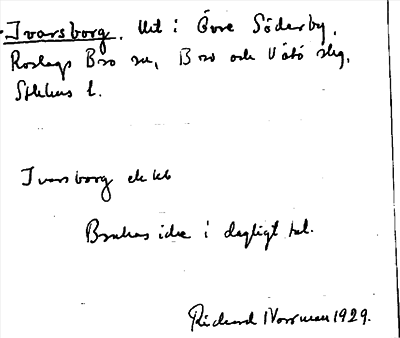 Ivarsborg. Utt i Övre Söderby,
Roslags Bro sn, Bro och Vätö slg,
Sthlms l.
Ivarsborg ek kb
Brukas icke i dagligt tal.
Richard Norrman 1929.